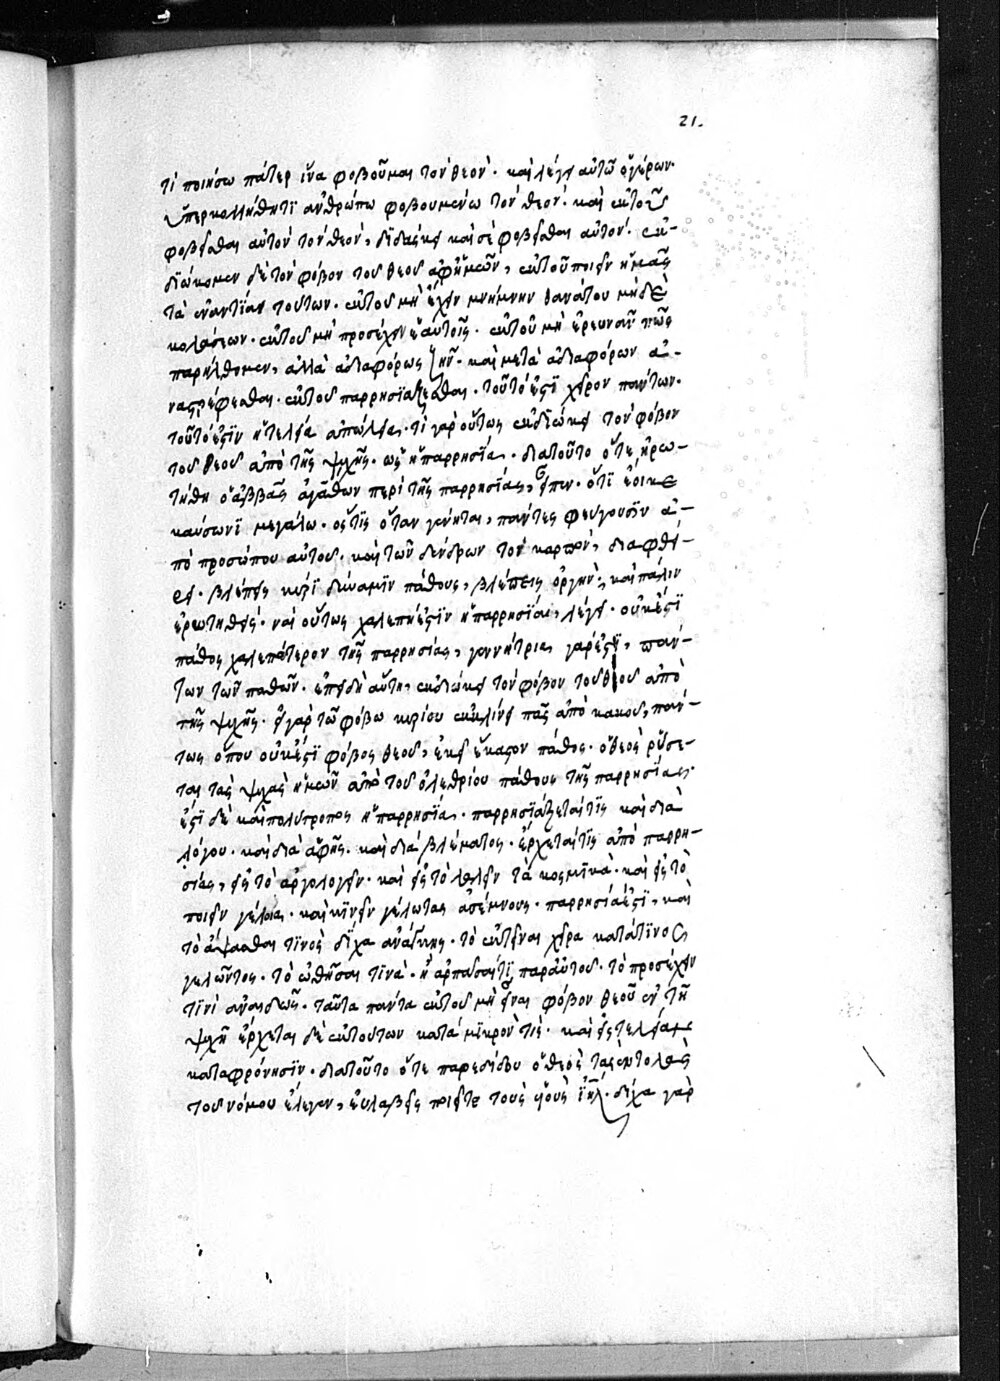 21.
τί ποιήσω πάτερ ἵνα φοβοῦμαι τὸν θεόν· καὶ λέγει αὐτῶ ὁ γέρων·
ὕπερ κολλήθητι ἀνθρώπω φοβουμένω τὸν θεόν· καὶ ἐκ τοῦ
φοβεῖσθαι αὐτὸν τὸν θεόν, διδάσκει καὶ σὲ φοβεῖσθαι αὐτόν. ἐκ-
διώκομεν δὲ τὸν φόβον τοῦ θεοῦ ἀφ' ἡμῶν, ἐκ τοῦ ποιεῖν ἡμᾶς
τὰ ἐναντία τούτων· ἐκ τοῦ μὴ ἔχειν μνήμην θανάτου μηδὲ
κολάσεων· ἐκ τοῦ μὴ προσέχειν ἑαυτοῖς· ἐκ τοῦ μὴ ἐρευνᾶν πῶς
παρήλθομεν, ἀλλὰ ἀδιαφόρως ζῆν· καὶ μετὰ ἀδιαφόρων ἀ-
ναστρέφεσθαι· ἐκ τοῦ παρρησϊάζεσθαι· τοῦτό ἐστϊ χεῖρον πάντων·
τοῦτό ἐστϊν ἡ τελεία ἀπώλεια· τί γὰρ οὕτως ἐκδϊώκει τὸν φόβον
τοῦ θεοῦ ἀπὸ τῆς ψυχῆς· ὡς ἡ παρρησία· διατοῦτο ὅτε ἠρω-
τήθη ὁ ἀββᾶς ἀγάθων περὶ τῆς παρρησίας, εἶπεν· ὅτϊ ἔοικε
καύσωνϊ μεγάλω· ὅς τϊς ὅταν γένηται, πάντες φεύγουσϊν ἀ-
πὸ προσώπου αὐτοῦ· καὶ τῶν δένδρων τὸν καρπὸν, διαφθεί-
ρει· βλέπεις κύρϊ δύναμϊν πάθους, βλέπεις ὀργήν; καὶ πάλιν
ἐρωτηθείς· ναὶ οὕτως χαλεπή ἐστϊν ἡ παρρησϊά, λέγει· οὐκ ἔστϊ
πάθος χαλεπώτερον τῆς παρρησίας, γεννήτρια γάρ ἐστϊ, πάν-
των τῶν παθῶν· ἐπειδὴ αὕτη, ἐκδιώκει τὸν φόβον τοῦ θεοῦ ἀπὸ
τῆς ψυχῆς· εἰ γὰρ τῶ φόβω κυρίου ἐκκλίνει πᾶς ἀπὸ κακοῦ, πάν-
τως ὅπου οὐκ ἔστϊ φόβος θεοῦ, ἐκεῖ ἕκαστον πάθος· ὁ θεὸς ῥύσε-
ται τὰς ψυχὰς ἡμῶν ἀπὸ τοῦ ὀλεθρίου πάθους τῆς παρρησίας·
ἔστϊ δὲ καὶ πολύτροπος ἡ παρρησϊά· παρρησϊάζεταί τϊς καὶ διὰ
λόγου· καὶ διὰ ἁφῆς· καὶ διὰ βλέματος· ἔρχεταί τϊς ἀπὸ παρρη-
σίας, εἰς τὸ ἀργολογεῖν· καὶ εἰς τὸ λαλεῖν τὰ κοσμϊκὰ· καὶ εἰς τὸ
ποιεῖν γέλοια· καὶ κϊνεῖν γέλωτας ἀσέμνους· παρρησία ἐστϊ, καὶ
τὸ ἅψασθαι τϊνὸς δίχα ἀνάγκης· τὸ ἐκτεῖναι χεῖρα κατά τϊνος
γελῶντος· τὸ ὠθῆσαι τϊνὰ· ἢ ἁρπᾶσαί τϊ παρ' αὐτοῦ· τὸ προσέχειν
τϊνὶ ἀναιδῶς· ταῦτα πάντα ἐκ τοῦ μὴ εἶναι φόβον θεοῦ ἐν τῆ
ψυχῆ ἔρχεται δὲ ἐκ τούτων κατὰ μϊκρὸν τὶς· καὶ εἰς τελείαν
καταφρόνησϊν· διατοῦτο ὅτε παρεδίδου ὁ θεὸς τὰς ἐντολὰς
τοῦ νόμου ἔλεγεν, εὐλαβεῖς ποιεῖτε τοὺς υἱοὺς ἰηλ. δίχα γὰρ